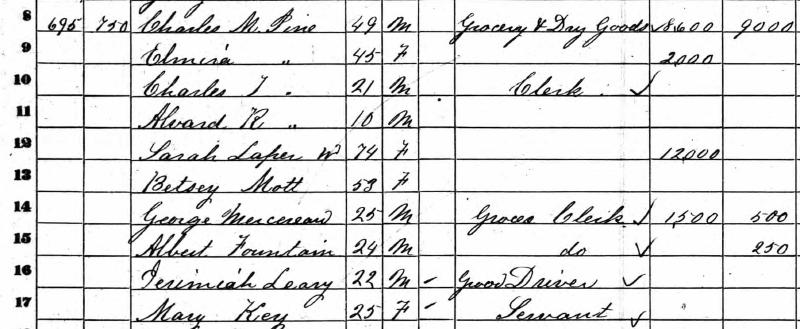 8 695 750 Charles M. Pine 49 M Grocery & Dry Goods ✓ 8,600 9000
9 Elmira " 45 F 2,000
10 Charles T " 21 M Clerk. ✓
11 Alvard R " 10 M
12 Sarah Laper Wd 74 F 12,000
13 Betsey Mott 53 F
14 George Mercereau 25 M Groces Clerk. ✓ 1,500 500
15 Albert Fountain 24 M do ✓ 250
16 Jerimiah Leary 22 M Driver ✓
17 Mary Key 25 F Servant ✓